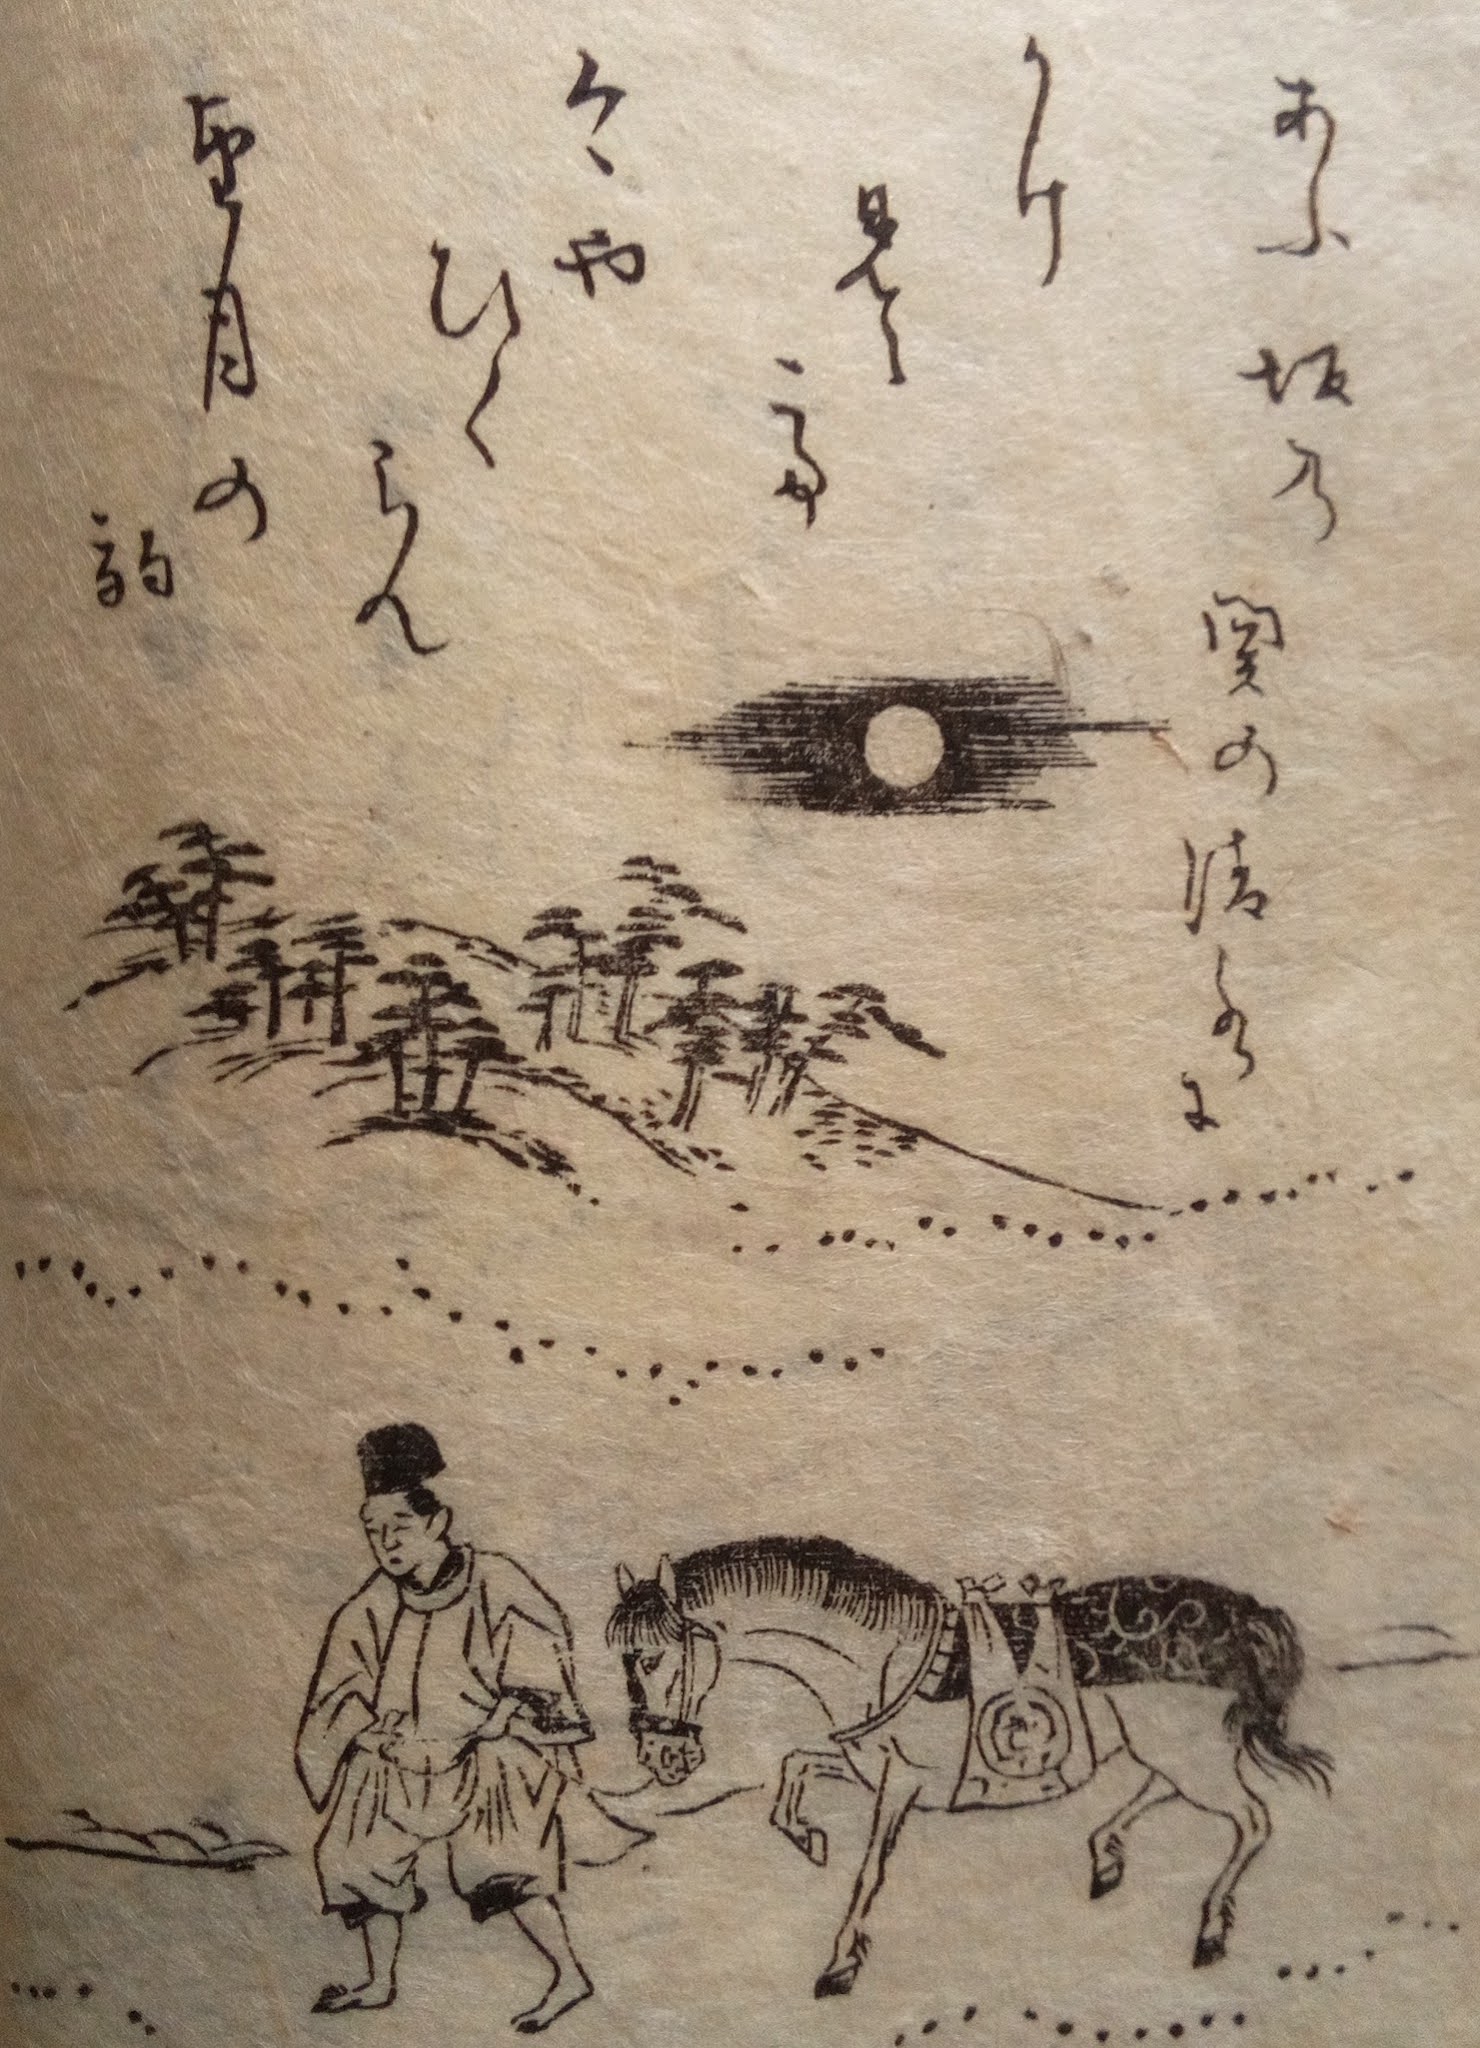 あふ坂乃関の清水に
かけ
見えて
今や
ひく
らん
望月の
駒